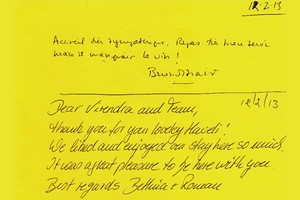 12.2.13
Accueil très sympathique. Repas très bien servi
mais il manquait le vin !
12/2/13
Dear Virendra and Team,
thank you for your lovely Haveli!
We liked and enjoyed our stay here so much.
It was a great pleasure to be here with you.
Best regards Bettina + Roman